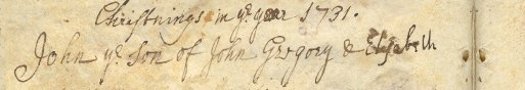 Christnings in ye year 1731.
John ye Son of John Gregory & Elizabeth